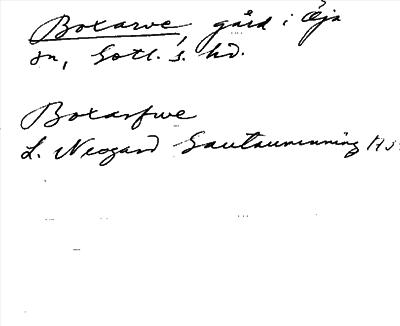 Botarve, gård i Öja
sn, Gotl. s. hd.
Botarfwe
L. Neogard Gautauminning